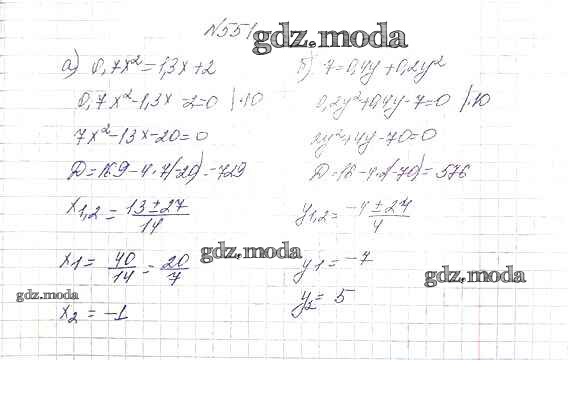 N551
gdz.moda
а) 0,7x² = 1,3x + 2
0,7x² - 1,3x - 2 = 0 | ·10
7x² - 13x - 20 = 0
D = 169 - 4 · 7(-20) = 729
x1,2 = (13 ± 27)/14
x1 = 40/14 = 20/7
x2 = -1
б) 7 = 0,4y + 0,2y²
0,2y² + 0,4y - 7 = 0 | ·10
2y² + 4y - 70 = 0
D = 16 - 4·2(-70) = 576
y1,2 = (-4 ± 24)/4
y1 = -7
y2 = 5
gdz.moda
gdz.moda
gdz.moda